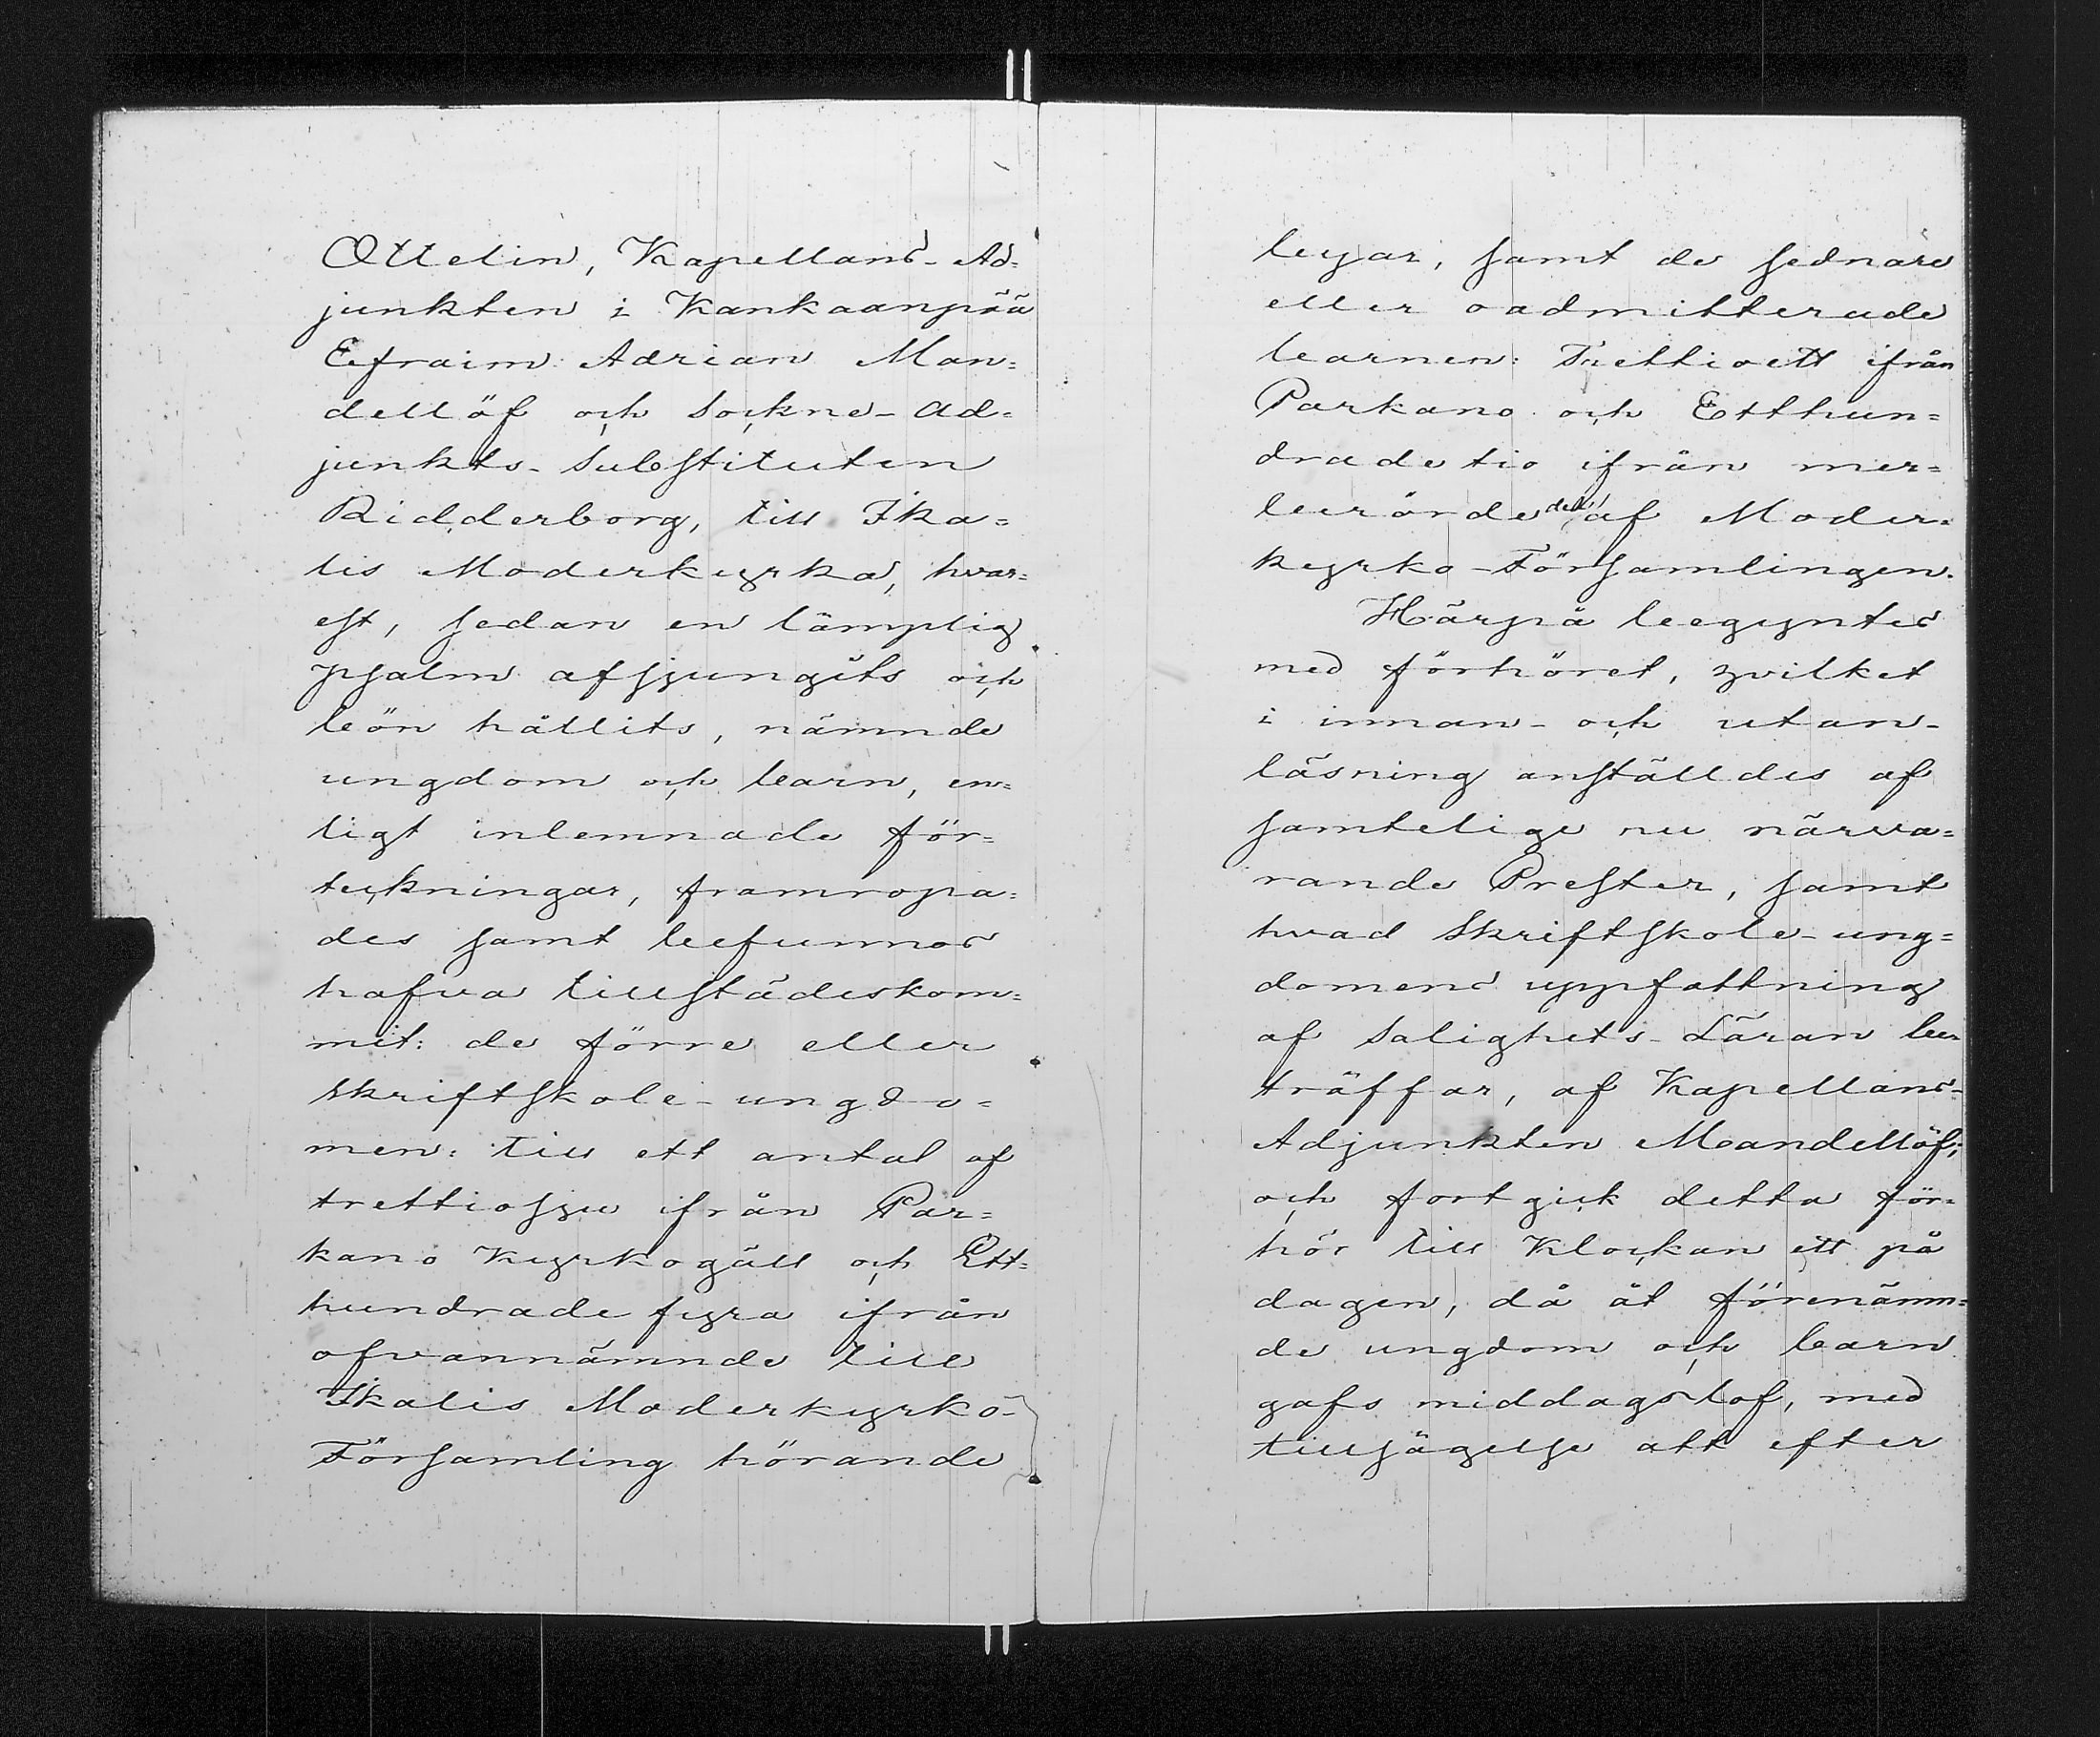 Ottelin, Kapellans-Ad=
junkten i Kankaanpää
Efraim Adrian Man=
dellöf och Sockne-Ad=
junkts-Substituten
Ridderborg, till Ika=
lis Moderkyrka, hvar=
est, sedan en lämplig
psalm afsjungits och
bön hållits, nämnde
ungdom och barn, en=
ligt inlemnade för=
teckningar, framropa=
des samt befunnos
hafva tillstädeskom=
mit: de förre eller
skriftskole-ungdo=
men: till ett antal af
trettiosju ifrån Par=
kano Kyrkogäll och Ett=
hundrade fyra ifrån
ofvannämnde till
Ikalis Moderkyrko-
Församling hörande
byar, samt de sednare
eller oadmitterade
barnen: Trettioett ifrån
Parkano och Etthun=
dradetio ifrån mer=
berörde del af Moder=
kyrko-Församlingen.
Härpå begyntes
med förhöret, hvilket
i innan- och utan-
läsning anställdes af
samtelige nu närva=
rande Prester, samt
hvad Skriftskole-ung=
domens uppfattning
af Salighets-Läran be=
träffar, af Kapellans-
Adjunkten Mandellöf;
och fortgick detta för=
hör till Klockan ett på
dagen, då åt förenämn=
de ungdom och barn
gafs middagslof, med
tillsägelse att efter